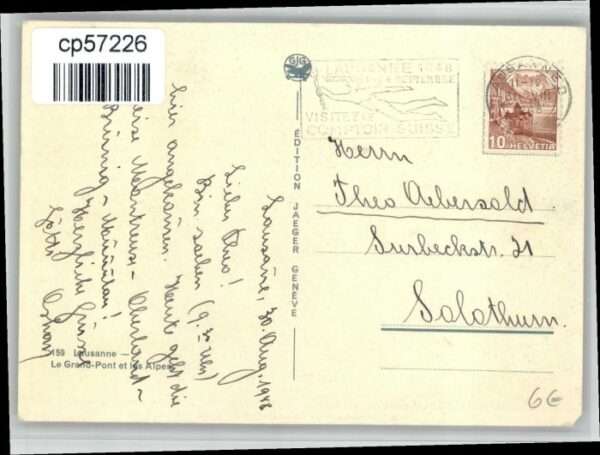 cp57226
GJG
LAUSANNE 1948
SEPTEMBRE
VISITEZ LE
COMPTOIR SUISSE
LAUSANNE
10 HELVETIA
ÉDITION JAEGER GENÈVE
Herrn
Theo Aebersold
Surbeckstr. 31
Solothurn.
Lausanne, 30. Aug. 1948
Lieber Theo!
Bin soeben (9.30 Uhr)
hier angekommen. Heute geht die
Reise Montreux - Oberland -
Brünig - Münital!
Herzliche Grüsse
Götti
Oskar
159 Lausanne —
Le Grand-Pont et les Alpes
6€